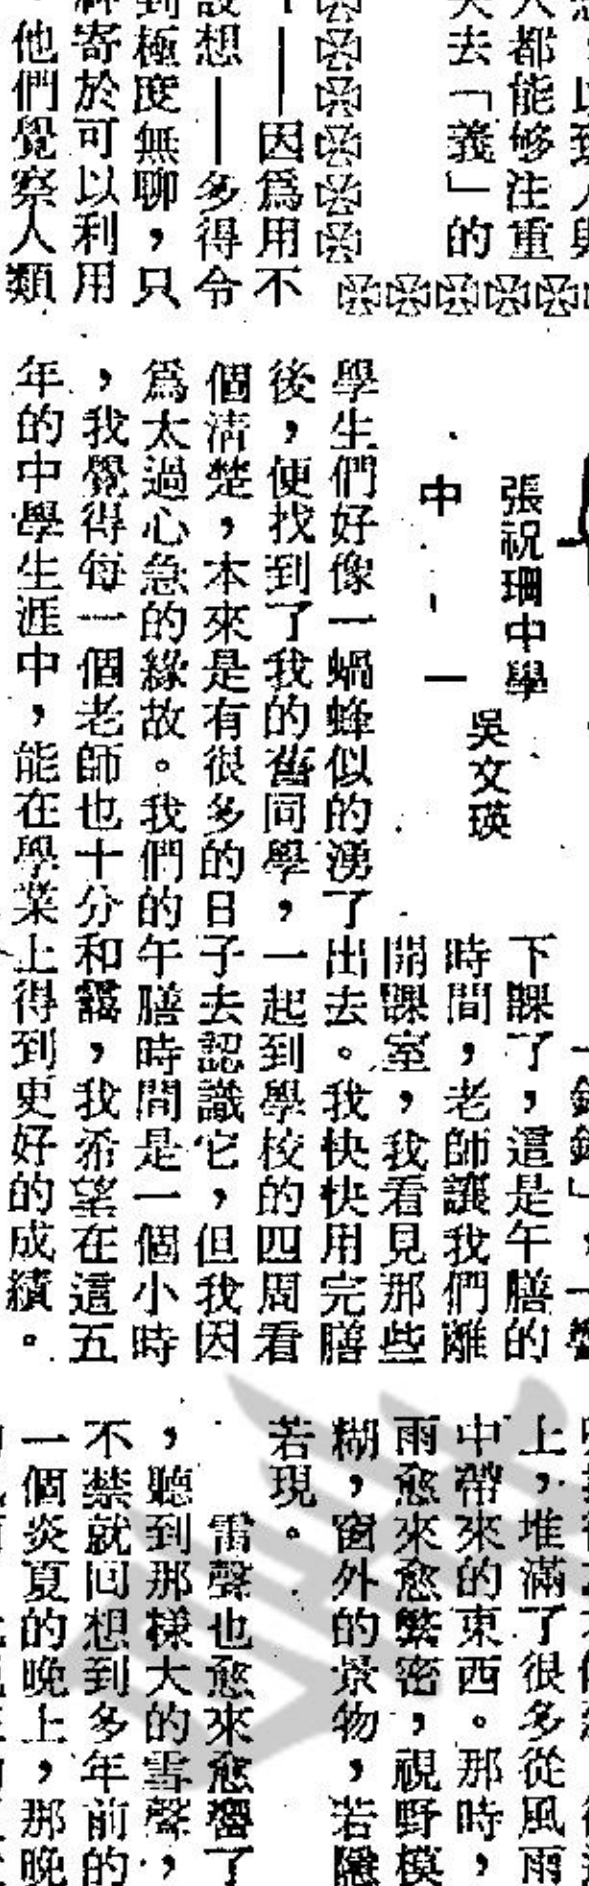 人都能够注重
失去「義」的
——因爲用不
設想——多得令
到極度無聊，只
寄於可以利用
他們覺察人類
張祝珊中學
中一
吳文瑛
下課了，這是午膳的
時間，老師讓我們離
開課室，我看見那些
學生們好像一蝸蜂似的湧了出去。我快快用完膳
後，便找到了我的舊同學，一起到學校的四周看
個清楚，本來是有很多的日子去認識它，但我因
爲太過心急的緣故。我們的午膳時間是一個小時
，我覺得每一個老師也十分和靄，我希望在這五
年的中學生涯中，能在學業上得到更好的成績。
上，堆滿了很多從風雨
中帶來的東西。那時，
雨愈來愈繁密，視野模
糊，窗外的景物，若隱
若現。
雷聲也愈來愈響了
，聽到那樣大的雷聲，
不禁就回想到多年前的
一個炎夏的晚上，那晚